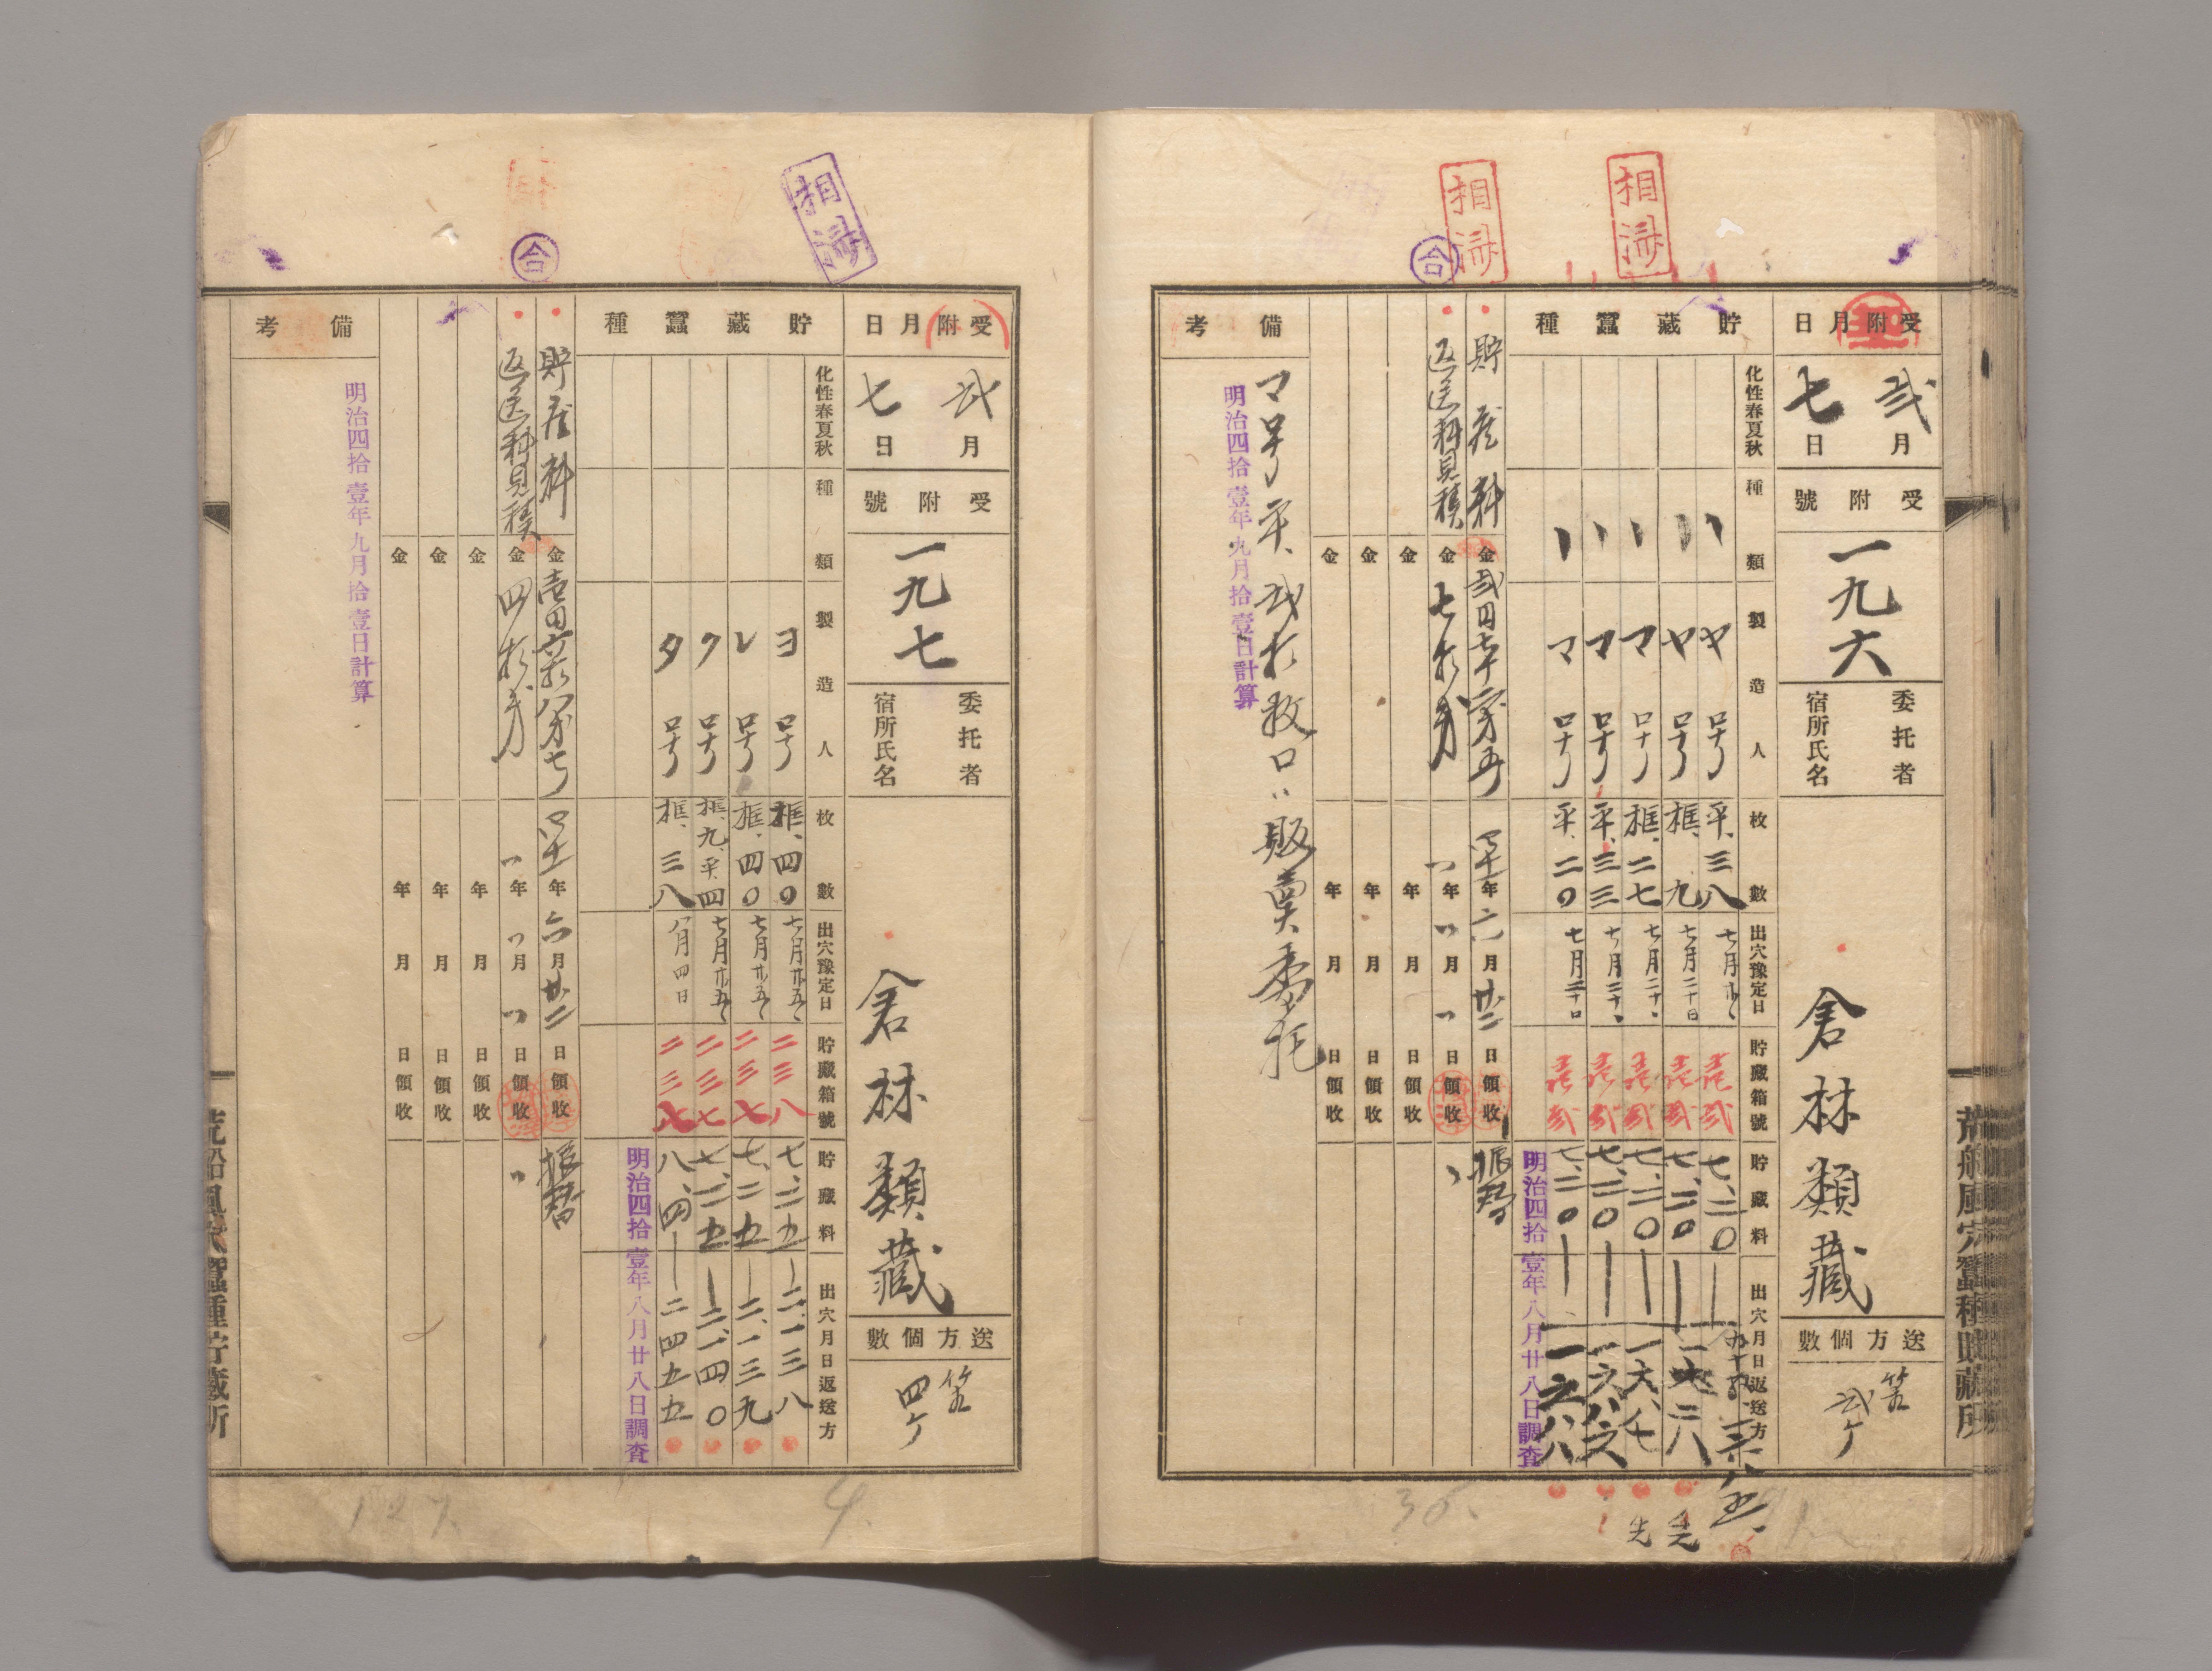 相済
相済
合
受附月日
弐月
七日
受附號
一九六
委托者
宿所氏名
倉林類藏
送方個數
笞
弐ケ
貯藏蠶種
化性春夏秋
種類
製造人
枚數
出穴豫定日
貯藏箱號
貯藏料
出穴月日返送方
ヤ号 平、三八 七月 壱弐 七、二〇
ヤ号 框、九 七月二十日 壱弐 七、二〇
マ号 框、二七 七月二十 壱弐 七、二〇 一六八七
マ号 平、三三 七月二十 壱弐 七、二〇
マ号 平、二〇 七月二十日 壱弐 七、二〇 一六八八
先
先
明治四拾壹年八月廿八日調査
貯蔵料 金 年六月廿二日領收 振替
返送料見積 金七拾 年月日領收
金 年月日領收
金 年月日領收
金 年月日領收
備考
マ号平、弐拾枚口ハ販賣委托
明治四拾壹年九月拾壹日計算
荒船風穴蠶種貯藏所
相済
合
受附月日
弐月
七日
受附號
一九七
委托者
宿所氏名
倉林類藏
送方個數
笞
四ケ
貯藏蠶種
化性春夏秋
種類
製造人
枚數
出穴豫定日
貯藏箱號
貯藏料
出穴月日返送方
ヨ号 框、四〇 七月廿五 二三八 七、二五 二、一三八
レ号 框、四〇 七月廿五 二三七 七、二五 二、一三九
ク号 框、九、平、四 七月廿五 二三七 七、二五 二、一四〇
タ号 框、三八 八月四日 二三七 八、四 二四五五
明治四拾壹年八月廿八日調査
貯蔵料 金 年六月廿二日領收 振替
返送料見積 金四拾 年月日領收
金 年月日領收
金 年月日領收
金 年月日領收
備考
明治四拾壹年九月拾壹日計算
荒船風穴蠶種貯藏所
127.